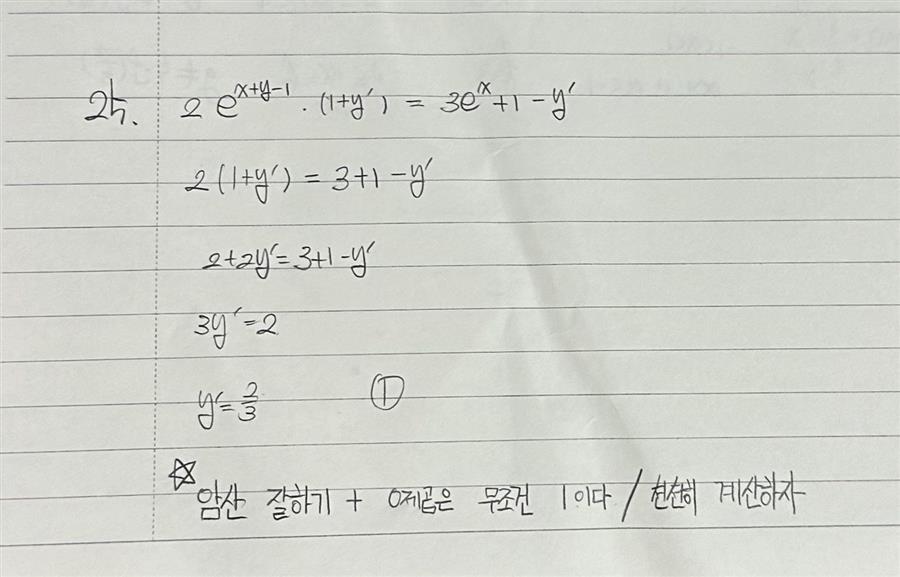 25. 2e^{x+y-1} · (1+y′) = 3e^x + 1 - y′
2(1+y′) = 3+1-y′
2+2y′=3+1-y′
3y′=2
y′=2/3 ①
☆ 암산 잘하기 + 0제곱은 무조건 1이다 / 천천히 계산하자